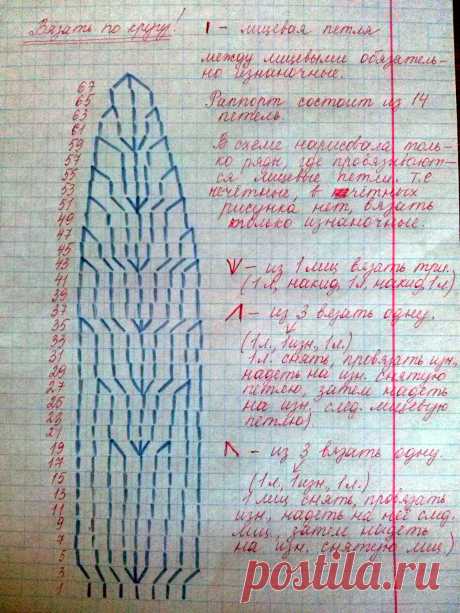 Вязать по кругу!
I - лицевая петля
между лицевыми обязатель-
но изнаночные.
Раппорт состоит из 14
петель.
В схеме нарисовала толь-
ко ряды, где провязывают-
ся лицевые петли, т.е
нечётные, в чётных
рисунка нет, вязать
только изнаночные.
V - из 1 лиц вязать три.
(1л, накид, 1л, накид, 1л)
Λ - из 3 вязать одну.
(1л., 1изн, 1л.)
1л. снять, провязать изн,
надеть на изн. снятую
петлю, затем надеть
на изн, след. лицевую
петлю)
- из 3 вязать одну.
(1л, 1изн, 1л.)
1 лиц снять, провязать
изн, надеть на неё след.
лиц, затем надеть
на изн. снятую лиц)
67
65
63
61
59
57
55
53
51
49
47
45
43
41
39
37
35
33
31
29
27
25
23
21
19
17
15
13
11
9
7
5
3
1
postila.ru